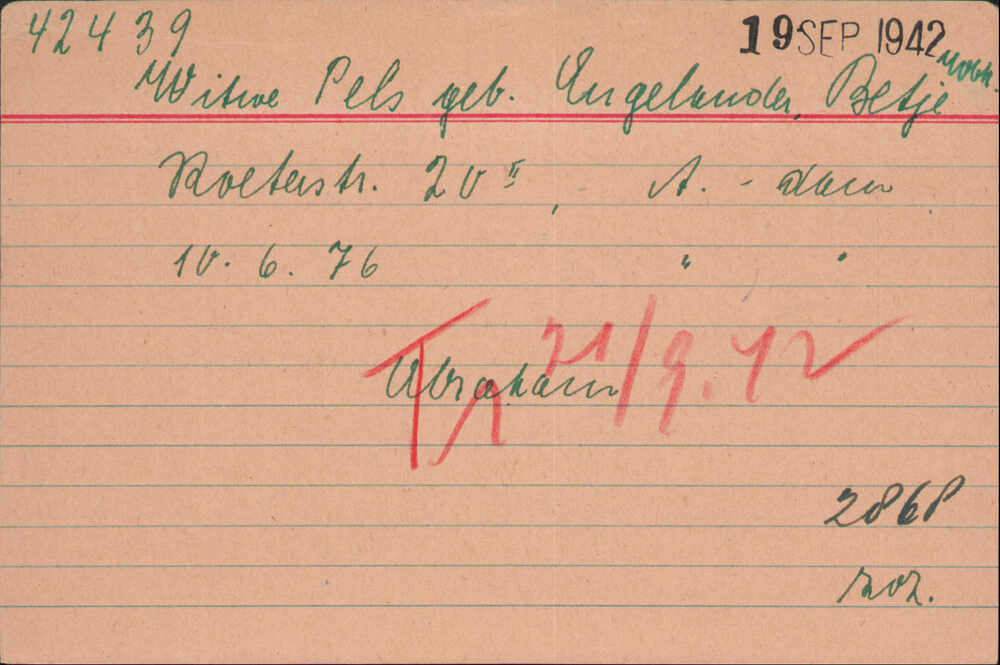 42439 19 SEP 1942
Witwe Pels geb. Engelander, Betje
Roeterstr. 20 II, A.-dam
10. 6. 76 " "
Abraham
Tr 21/9.42
2868